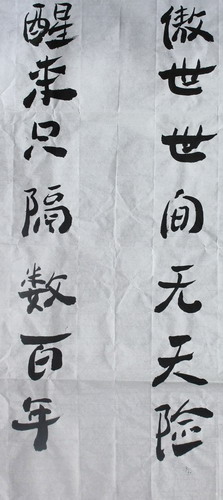 傲世世间无天险
醒来只隔数百年